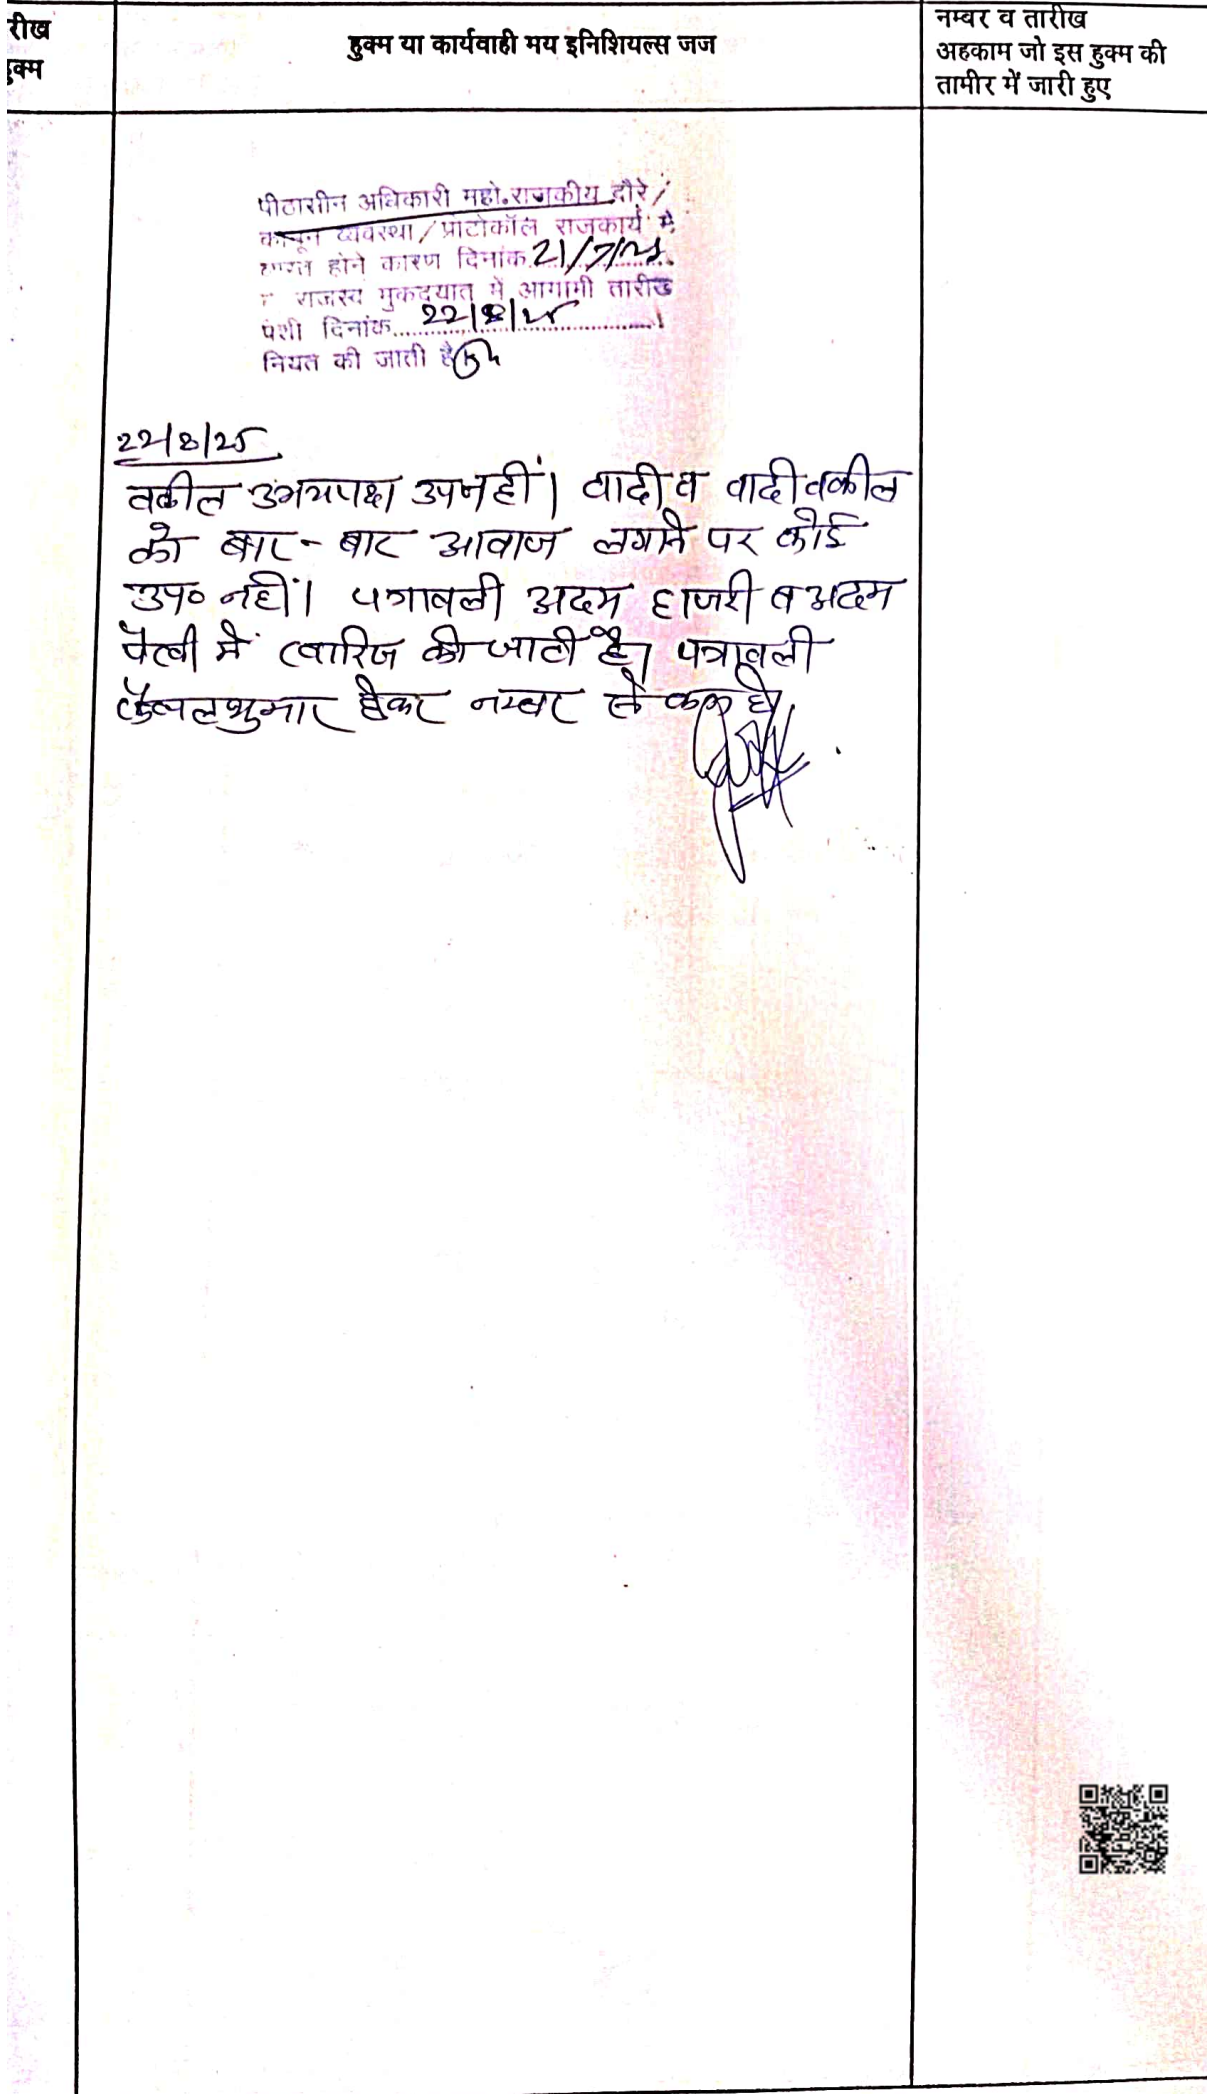 रीख
हुक्म
हुक्म या कार्यवाही मय इनिशियल्स जज
नम्बर व तारीख
अहकाम जो इस हुक्म की
तामीर में जारी हुए
पीठासीन अधिकारी महो. राजकीय दौरे/
कानून व्यवस्था/प्रोटोकॉल राजकार्य में
होने कारण दिनांक 21/7/25
राजस्व मुकदयात में आगामी तारीख
पेशी दिनांक 22/8/25
नियत की जाती है
22/8/25
वकील उभयपक्ष उप नहीं। वादी व वादी वकील
को बार-बार आवाज लगाने पर कोई
उप० नहीं। पत्रावली अदम हाजरी व अदम
पैरवी में खारिज की जाती है। पत्रावली
फैसलशुमार होकर नम्बर से कम हो।